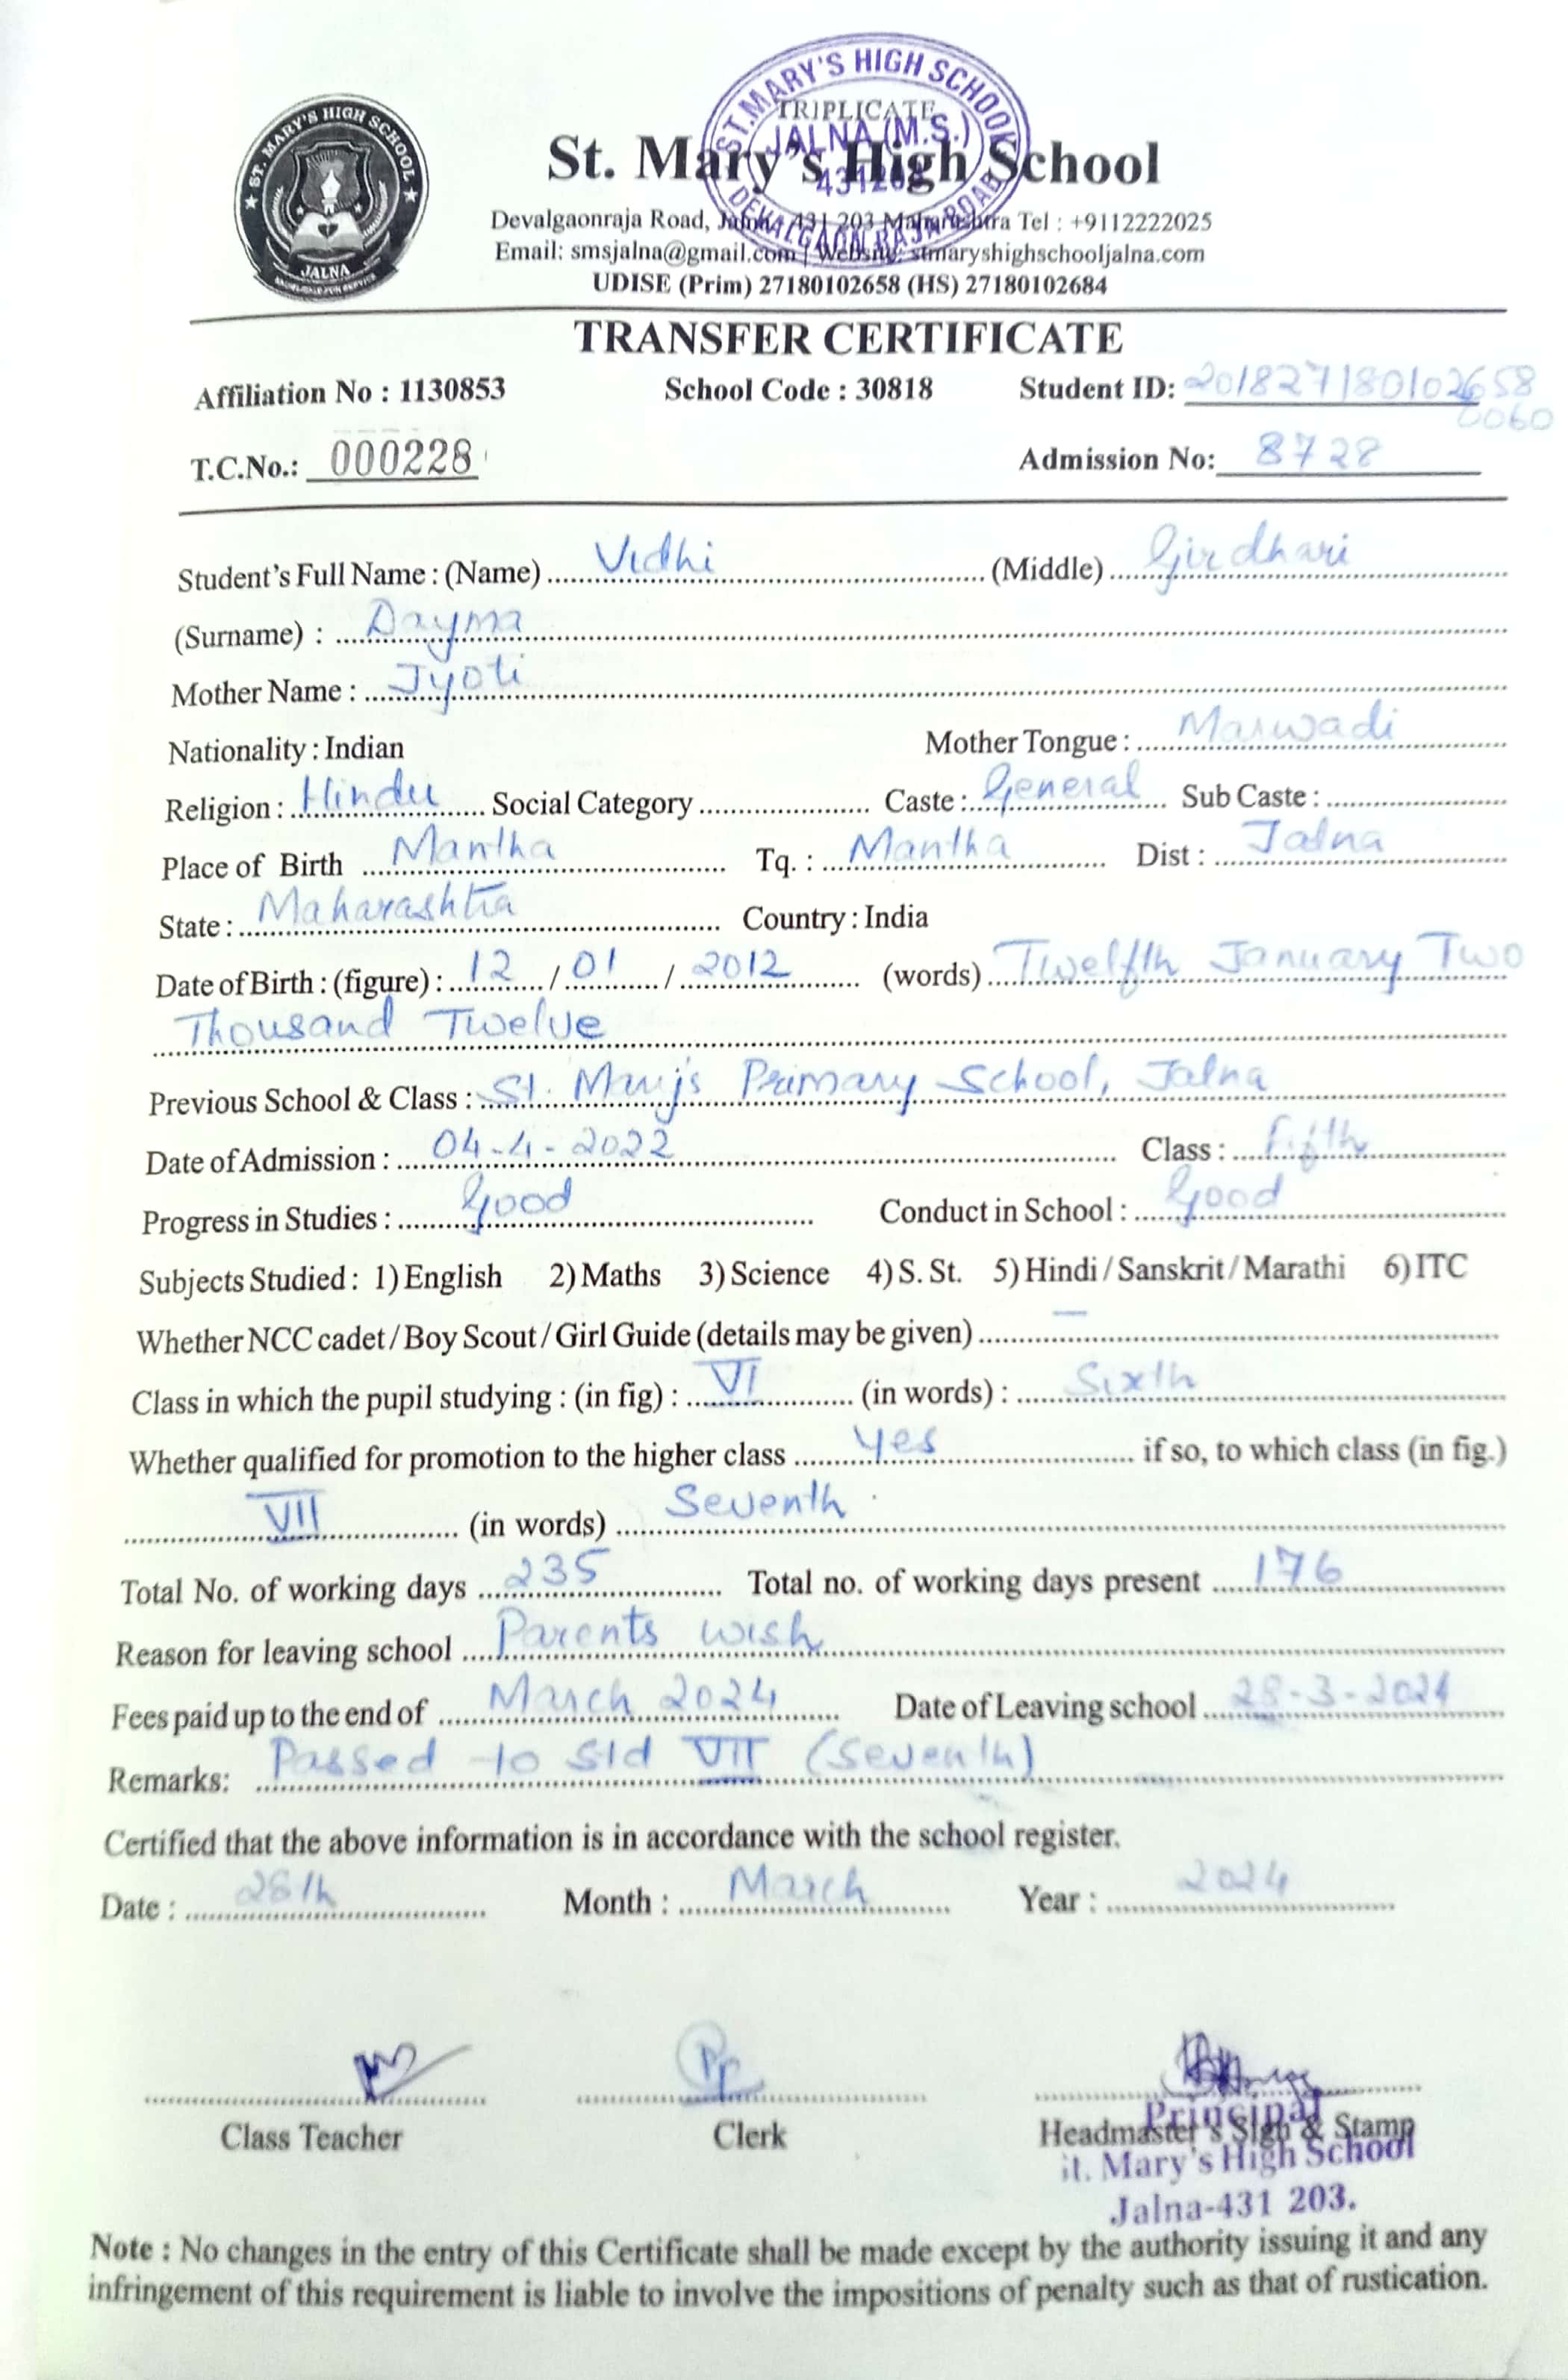 ST. MARY'S HIGH SCHOOL
JALNA
ST. MARY'S HIGH SCHOOL
TRIPLICATE
JALNA (M.S.)
DEVALGAON RAJA ROAD
St. Mary's High School
Devalgaonraja Road, Jalna - 431 203 Maharashtra Tel : +9112222025
Email: smsjalna@gmail.com | Website: stmaryshighschooljalna.com
UDISE (Prim) 27180102658 (HS) 27180102684
TRANSFER CERTIFICATE
Affiliation No : 1130853 School Code : 30818 Student ID: 201827180102658
0060
T.C.No.: 000228 Admission No: 8728
Student's Full Name : (Name) Vidhi (Middle) Girdhari
(Surname) : Dayma
Mother Name : Jyoti
Nationality : Indian Mother Tongue : Marwadi
Religion : Hindu Social Category Caste : General Sub Caste :
Place of Birth Mantha Tq. : Mantha Dist : Jalna
State : Maharashtra Country : India
Date of Birth : (figure) : 12 / 01 / 2012 (words) Twelfth January Two
Thousand Twelve
Previous School & Class : St. Mary's Primary School, Jalna
Date of Admission : 04-4-2022 Class : Fifth
Progress in Studies : Good Conduct in School : Good
Subjects Studied : 1) English 2) Maths 3) Science 4) S. St. 5) Hindi / Sanskrit / Marathi 6) ITC
Whether NCC cadet / Boy Scout / Girl Guide (details may be given) —
Class in which the pupil studying : (in fig) : VI (in words) : Sixth
Whether qualified for promotion to the higher class yes if so, to which class (in fig.)
VII (in words) Seventh
Total No. of working days 235 Total no. of working days present 176
Reason for leaving school Parents wish
Fees paid up to the end of March 2024 Date of Leaving school 28-3-2024
Remarks: Passed to Std VII (Seventh)
Certified that the above information is in accordance with the school register.
Date : 28th Month : March Year : 2024
Class Teacher Clerk Headmaster's Sign & Stamp
Principal
St. Mary's High School
Jalna-431 203.
Note : No changes in the entry of this Certificate shall be made except by the authority issuing it and any
infringement of this requirement is liable to involve the impositions of penalty such as that of rustication.